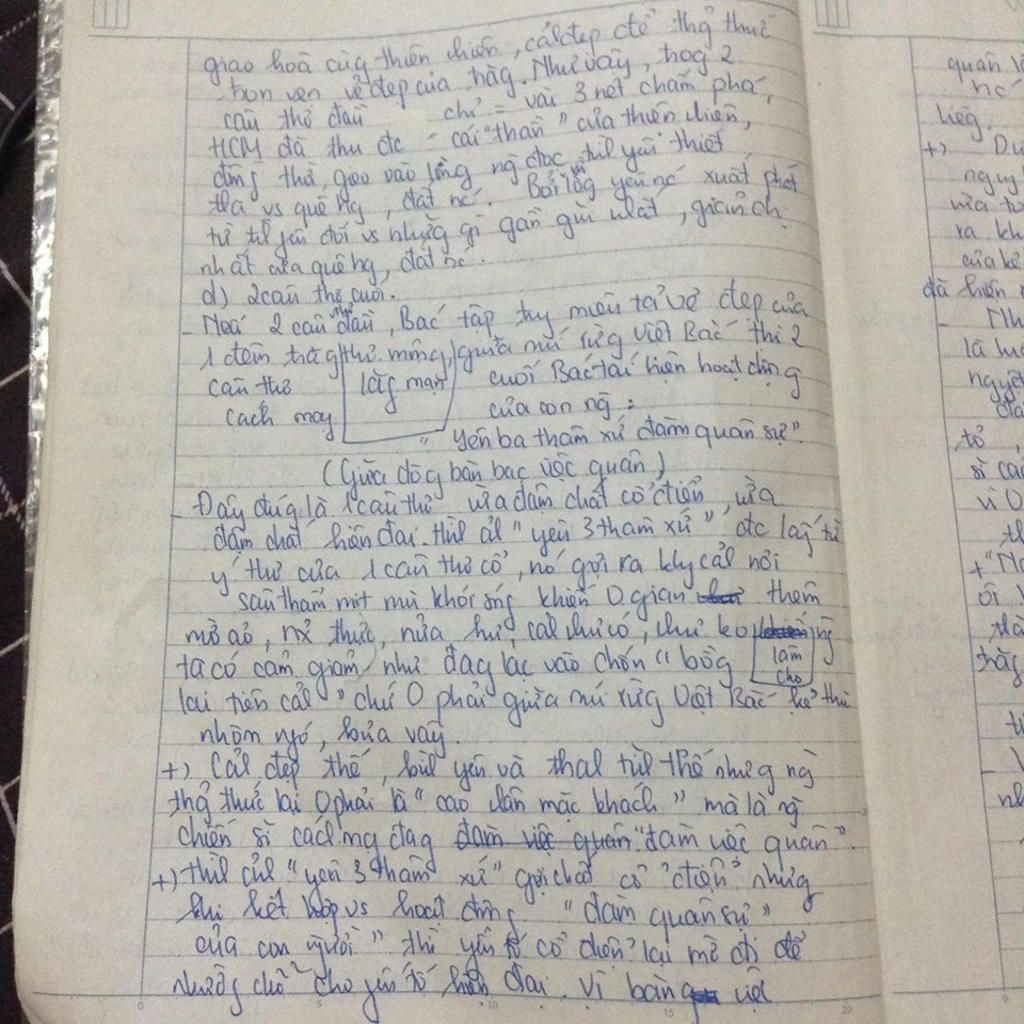 giao hoà cùg thiên nhiên, cảh đẹp để thg thức
trọn vẹn vẻ đẹp của trăg. Như vậy, trog 2
câu thơ đầu chỉ = vài 3 nét chấm phá,
HCM đã thu đc cái "thần" của thiên nhiên,
đồng thời, gieo vào lòng ng đọc tìh yêu thiết
tha vs quê hg, đất nc. Bởi lòg yêu nc xuất phát
từ tìh yêu đối vs nhữg gì gần gũi nhất, giản dị
nhất của quê hg, đất nc.
d) 2 câu thơ cuối.
- Nếu 2 câu thơ đầu, Bác tập trug miêu tả vẻ đẹp của
1 đêm trăg thơ mộng, giữa núi rừg Việt Bắc thì 2
câu thơ lãg mạn cuối Bác tái hiện hoạt động
cách mạg của con ng :
" Yên ba thâm xứ đàm quân sự".
(Giữa dòg bàn bạc việc quân)
- Đây đúg là 1 câu thơ vừa đậm chất cổ điển, vừa
đậm chất hiện đại. Hìh ảh "yên 3 thâm xứ", đc lấy từ
ý thơ của 1 câu thơ cổ, nó gợi ra khug cảh nơi
sâu thẳm mịt mù khói sóng khiến 0 gian thêm
mờ ảo, nử thực, nửa hư, cảh như có, như ko làm cho ng
ta có cảm giám như đag lạc vào chốn "bồg
lai tiên cảh" chứ 0 phải giữa núi rừg Việt Bắc kẻ thù
nhòm ngó, bủa vây.
+) Cảh đẹp thế, bìh yên và thah tịh thế nhưg ng
thg thức lại 0 phải là "cao nhân mặc khách" mà là ng
chiến sĩ cách mg đag đàm việc quân "đàm việc quân".
+) Hìh ảh "yên 3 thâm xứ" gợi chất cổ điển nhưg
khi kết hợp vs hoạt động "đàm quân sự"
của con người" thì yếu tố cổ điển lại mờ đi để
nhườg chỗ cho yếu tố hiện đại. Vì bàn việc
quân
nc
liêg
+)
nguy
vừa
ra kh
của kẻ
đã hiện
- Nh
là
nguyệ
tỏ,
sĩ
vì
+ "
ôi
trăg